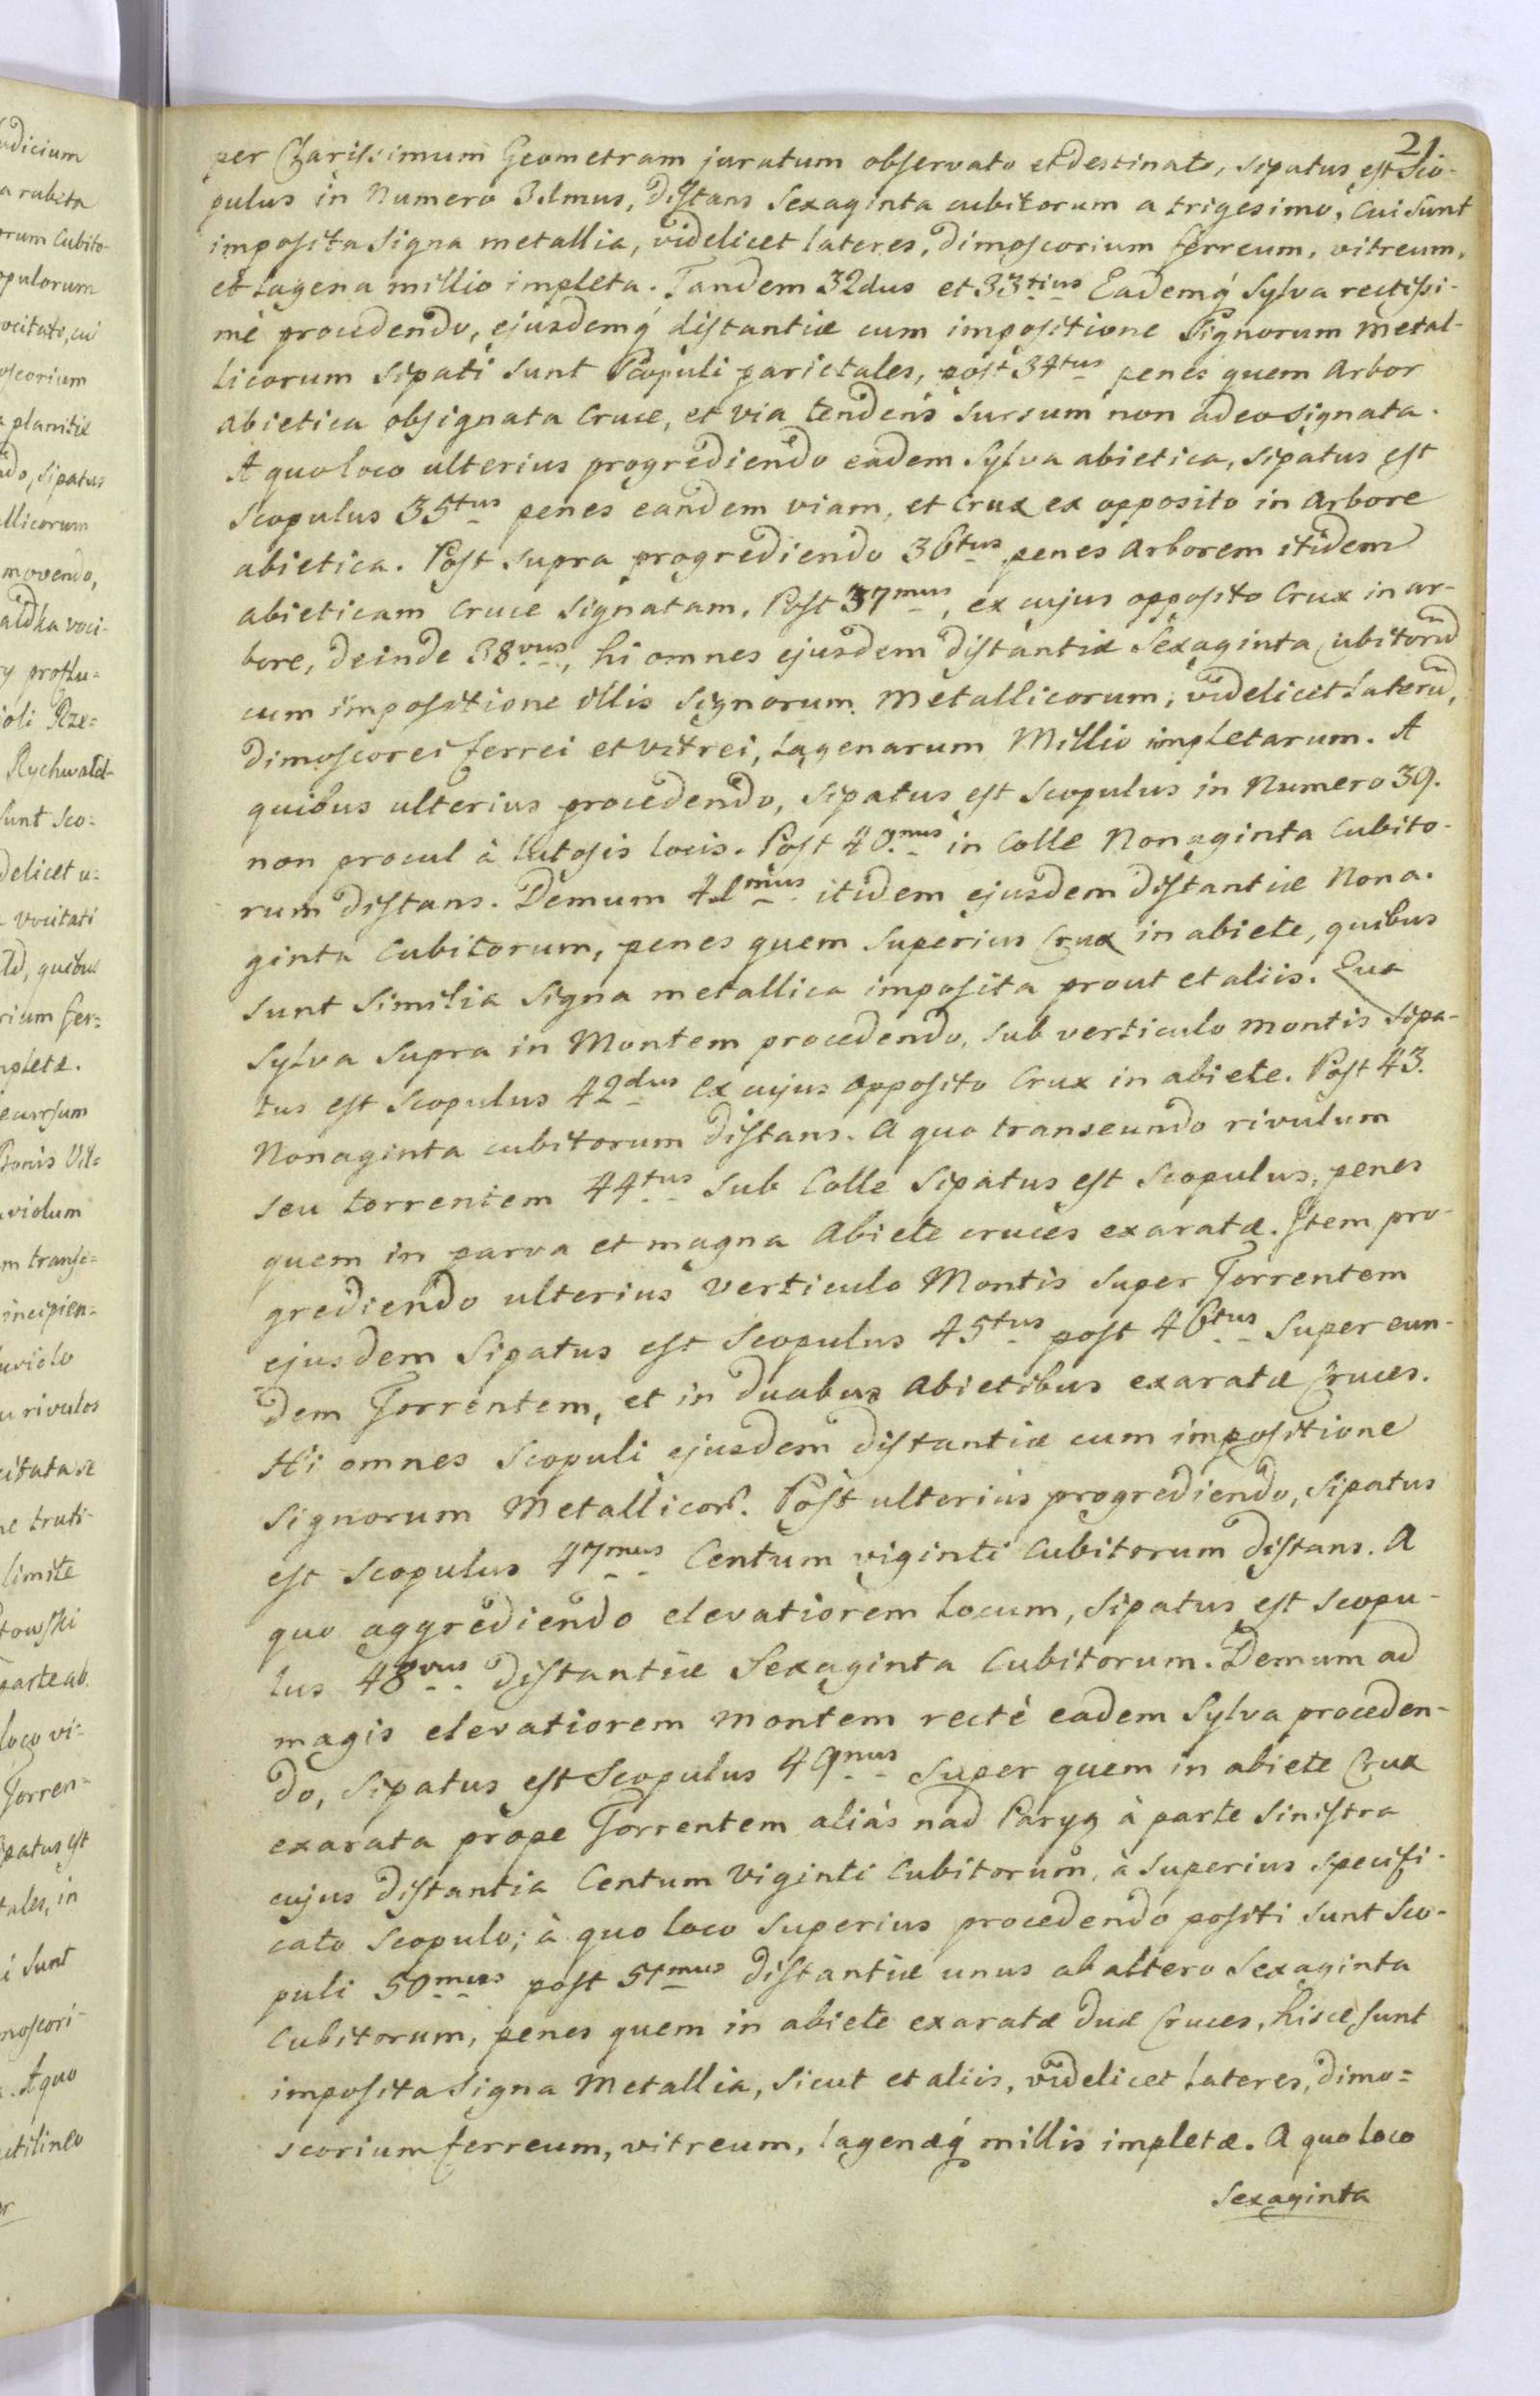 21.
per Charissimum Geometram juratum observato et destinato, sipatus est Sco-
pulus in Numero 31mus, distans Sexaginta cubitorum a trigesimo, cui sunt
imposita Signa metallia, videlicet lateres, dimoscorium ferreum, vitreum,
et lagena millio impleta. Tandem 32dus et 33tius Eademq́ Sylva rectissi-
mè procedendo, ejusdemq́ distantiæ cum impositione Signorum metal-
licorum Sipati sunt Scopuli parietales, post 34tus penes quem Arbor
abietica obsignata Cruce, et via tendens sursum non adeo signata.
A quo loco ulterius progrediendo eadem Sylva abietica, sipatus est
Scopulus 35tus penes eandem viam, et Crux ex opposito in arbore
abietica. Post supra progrediendo 36tus penes Arborem itidem
abieticam Cruce Signatam. Post 37mus, ex cujus opposito Crux in ar-
bore, deinde 38vus, hi omnes ejusdem distantiæ Sexaginta Cubitorũ
cum impositione illis Signorum Metallicorum, videlicet laterũ,
dimoscorei ferrei et vitrei, lagenarum Millio impletarum. A
quibus ulterius procedendo, sipatus est Scopulus in Numero 39.
non procul à lutosis locis. Post 40mus in Colle Nonaginta Cubito-
rum distans. Demum 41mus itidem ejusdem distantiæ Nona-
ginta Cubitorum, penes quem Superius Crux in abiete, quibus
sunt Similia Signa metallica imposita prout et aliis. Qua
Sylva Supra in Montem procedendo, sub verticulo montis Sipa-
tus est Scopulus 42dus ex cujus opposito Crux in abiete. Post 43.
Nonaginta cubitorum distans. A quo transeundo rivulum
seu torrentem 44tus sub Colle Sipatus est Scopulus, penes
quem in parva et magna Abiete cruces exaratæ. Item pro-
grediendo ulterius verticulo Montis super Torrentem
ejusdem Sipatus est Scopulus 45tus post 46tus Super eun-
dem Torrentem, et in duabus Abietibus exaratæ Cruces.
Hi omnes Scopuli ejusdem distantiæ cum impositione
Signorum Metallicor. Post ulterius progrediendo, Sipatus
est Scopulus 47mus Centum viginti Cubitorum distans. A
quo aggrediendo elevatiorem locum, Sipatus est Scopu-
lus 48vus distantiæ Sexaginta Cubitorum. Demum ad
magis elevatiorem Montem rectè eadem Sylva proceden-
do, Sipatus est Scopulus 49nus Super quem in abiete Crux
exarata prope Torrentem aliàs nad Paryg à parte sinistra
cujus distantia Centum Viginti Cubitorum, à Superius specifi-
cato Scopulo; à quo loco Superius procedendo positi sunt Sco-
puli 50mus post 51mus distantiæ unus ab altero Sexaginta
Cubitorum, penes quem in abiete exaratæ duæ Cruces, hisce sunt
imposita Signa Metallia, sicut et aliis, videlicet Lateres, dimo=
scorium ferreum, vitreum, lagenæq́ millis impletæ. A quo loco
Sexaginta